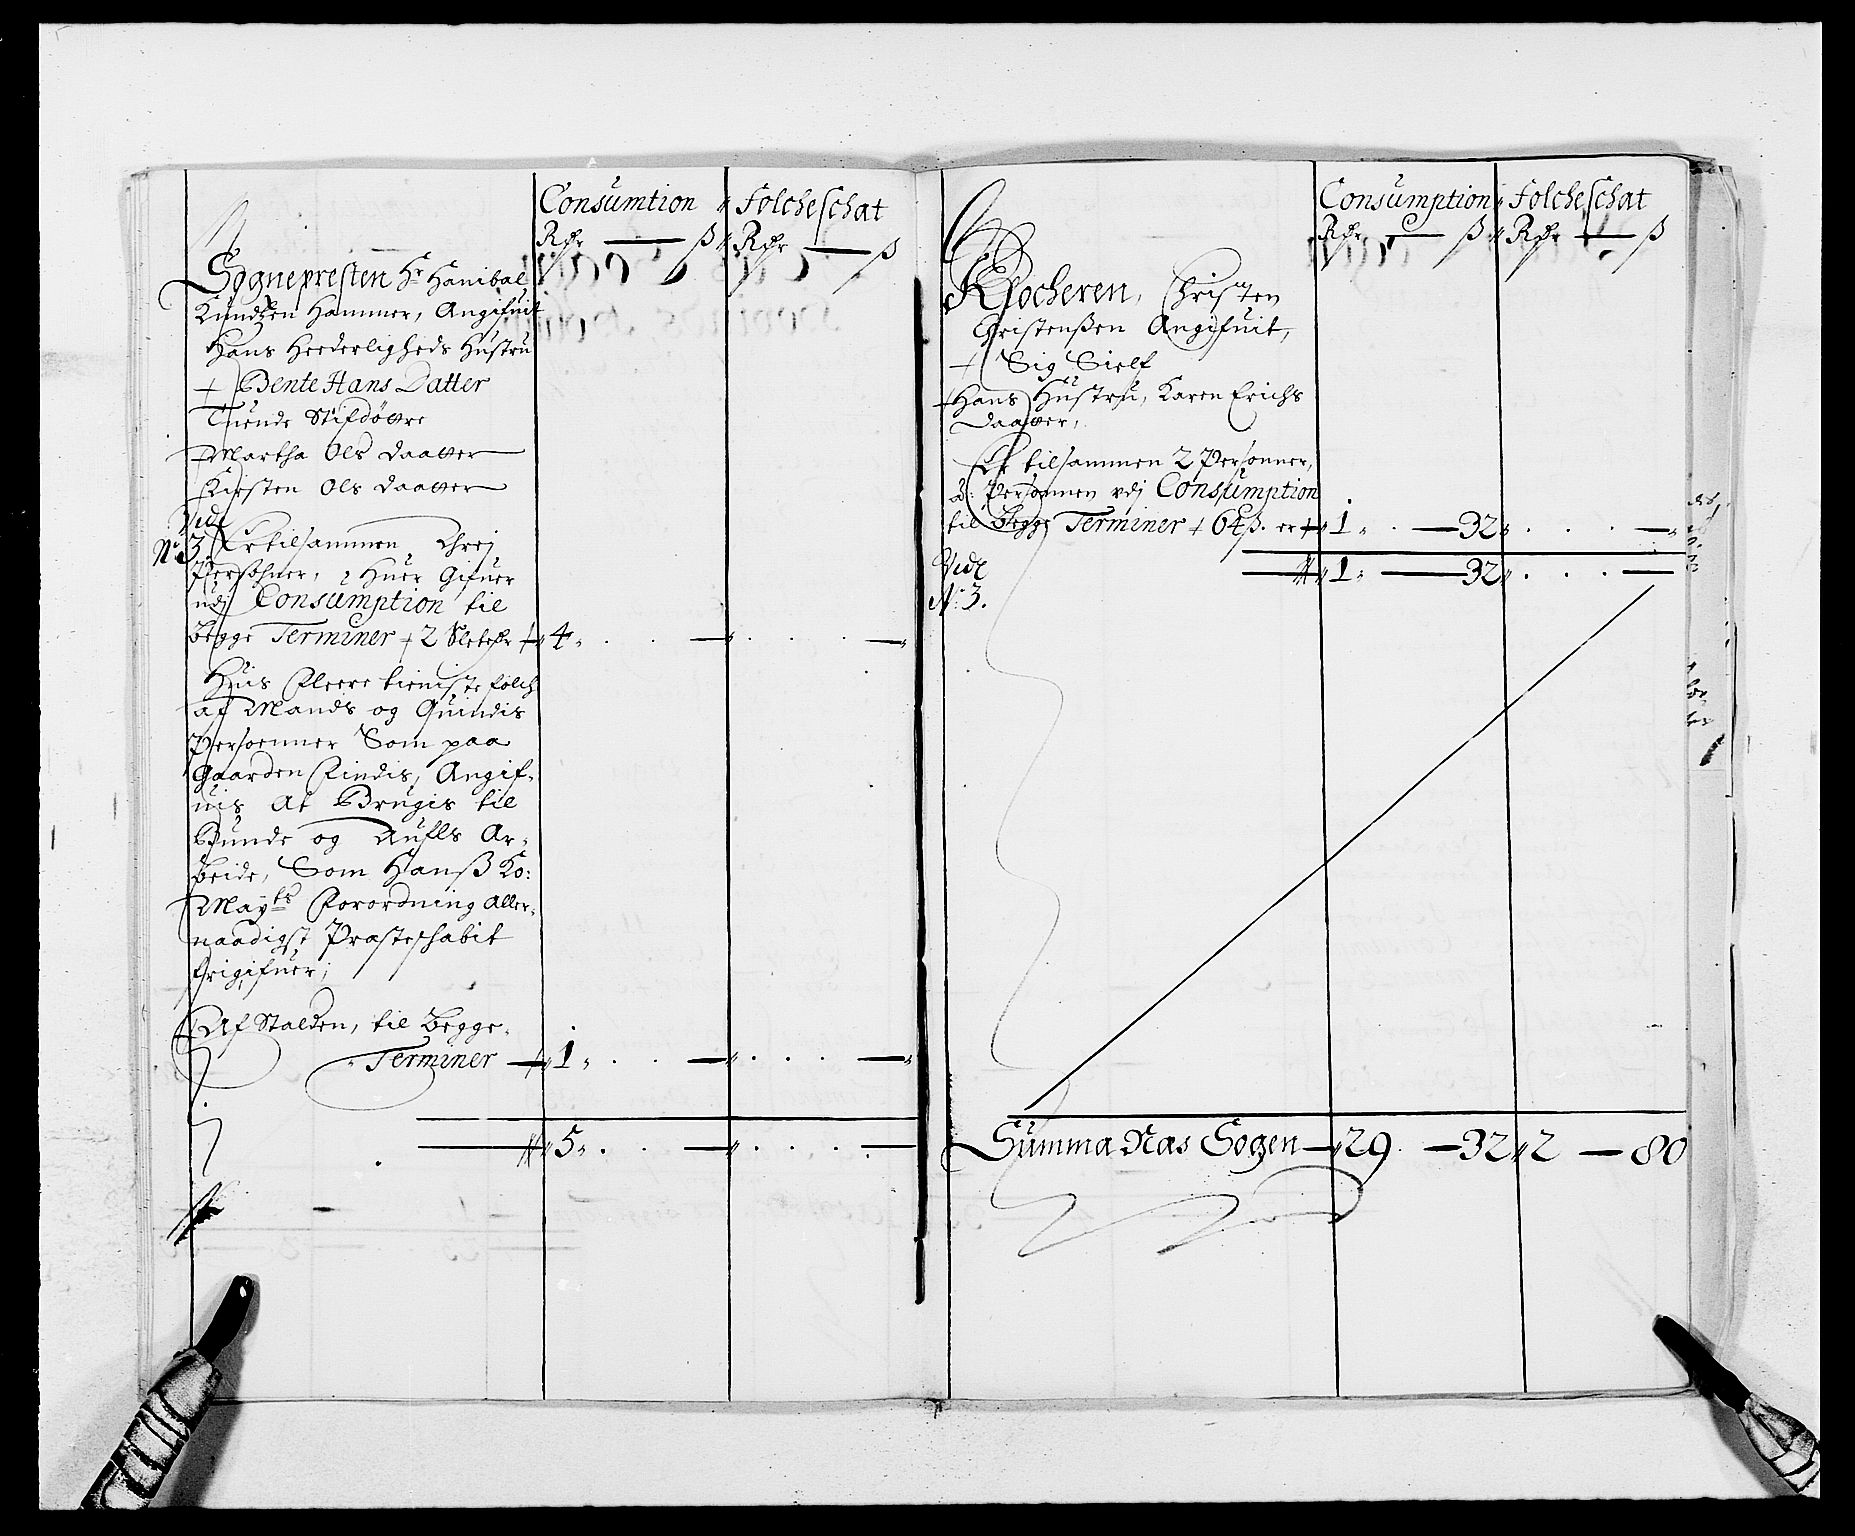 Consumtion
Folcheschat
Rdr ß
Rdr ß
Sognepresten Hr Hanibal
Knudzen Hammer, Angifuit
Hans Heederligheds Hustru
+ Bente Hans Datter
Tuende Stifdøttre
Martha Ols daatter
Kirsten Ols daatter
Vide
No 3 Er tilsammen Threj
Personer, Huer Gifuer
udj Consumption til
begge Terminer + 2 Sletdr + 4
Huis Fleere tieniste folch
af Mands og Quindis
Persoenner Som paa
Gaarden Findis, Angif-
uis At Brugis til
Bunde og Aufls Ar-
beide, Som Hanß Ko:
Mayts Forordning Aller-
naadigst Præsteschabit
frigifuer;
Af Stalden, til begge
Terminer 1
5
Consumption
Folcheschat
Rdr ß
Rdr ß
Klocheren, Christen
Christenßen Angifuit,
+ Sig Sielf
+ Hans Hustru, Karen Erichs
Daatter,
Er tilsammen 2 Personner,
Personen udj Consumption
til begge Terminer + 64ß. er + 1 32
Vide 1 32
No 3.
Summa Nas Sogen 29 32 2 80